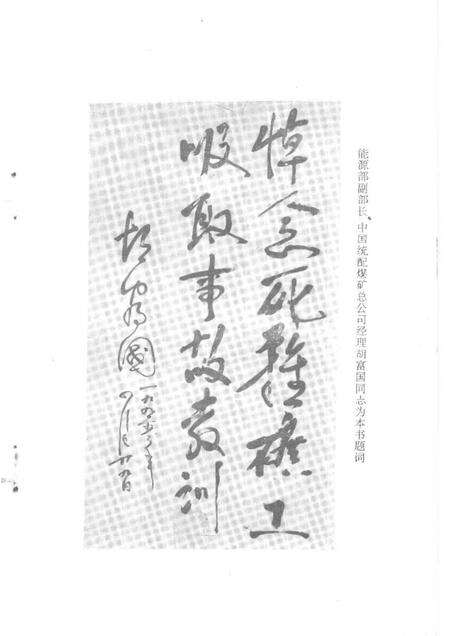 能源部副部长、中国统配煤矿总公司经理胡富国同志为本书题词
悼念死难矿工
吸取事故教训
胡富国